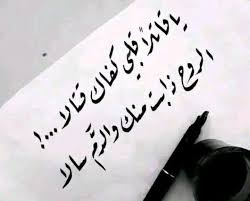 يا قاتلاً قلبي كفاك قتالا ...!
الروح ذابت منك والدّم سالا